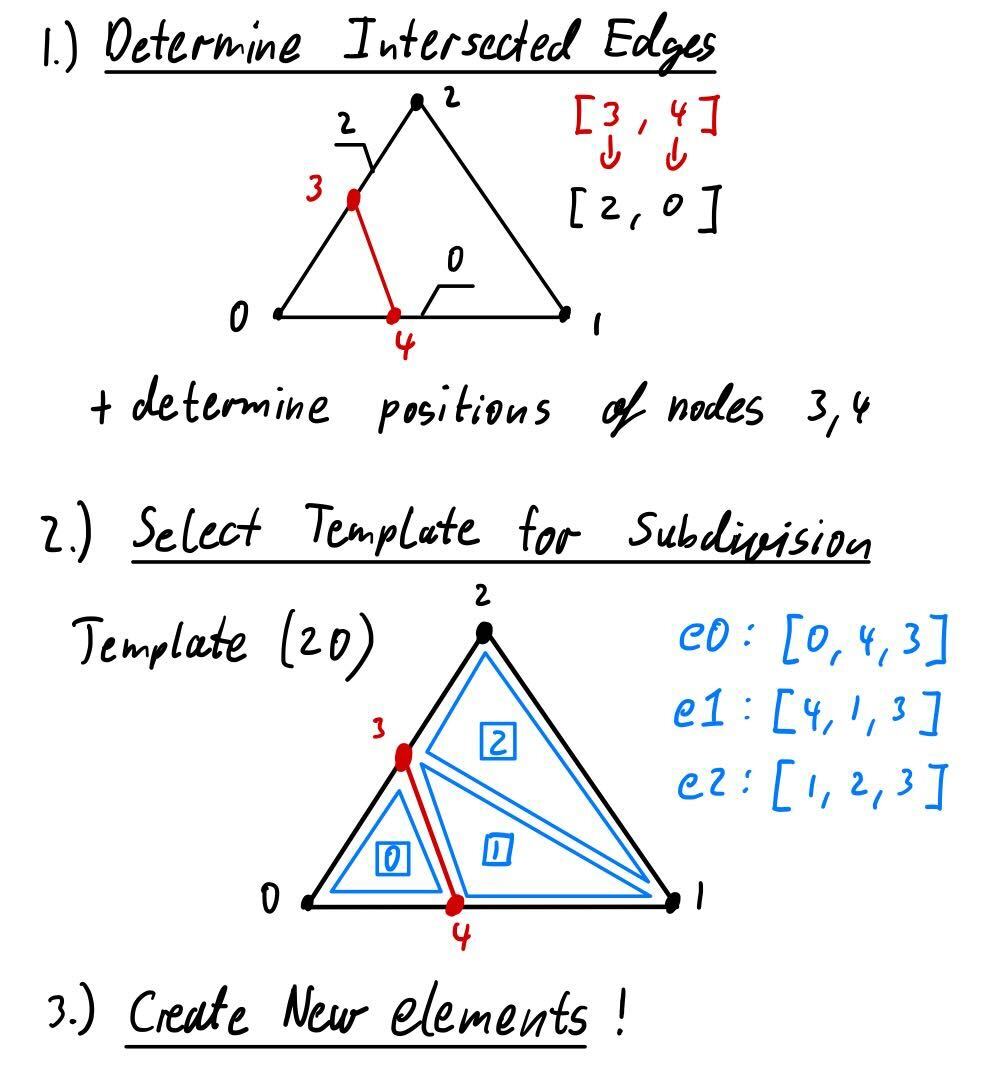 1.) Determine Intersected Edges
2
2
[3, 4]
3
[2, 0]
0
0
1
4
+ determine positions of nodes 3,4
2.) Select Template for Subdivision
2
Template (20)
e0: [0, 4, 3]
e1: [4, 1, 3]
3
2
e2: [1, 2, 3]
0
1
0
1
4
3.) Create New elements!